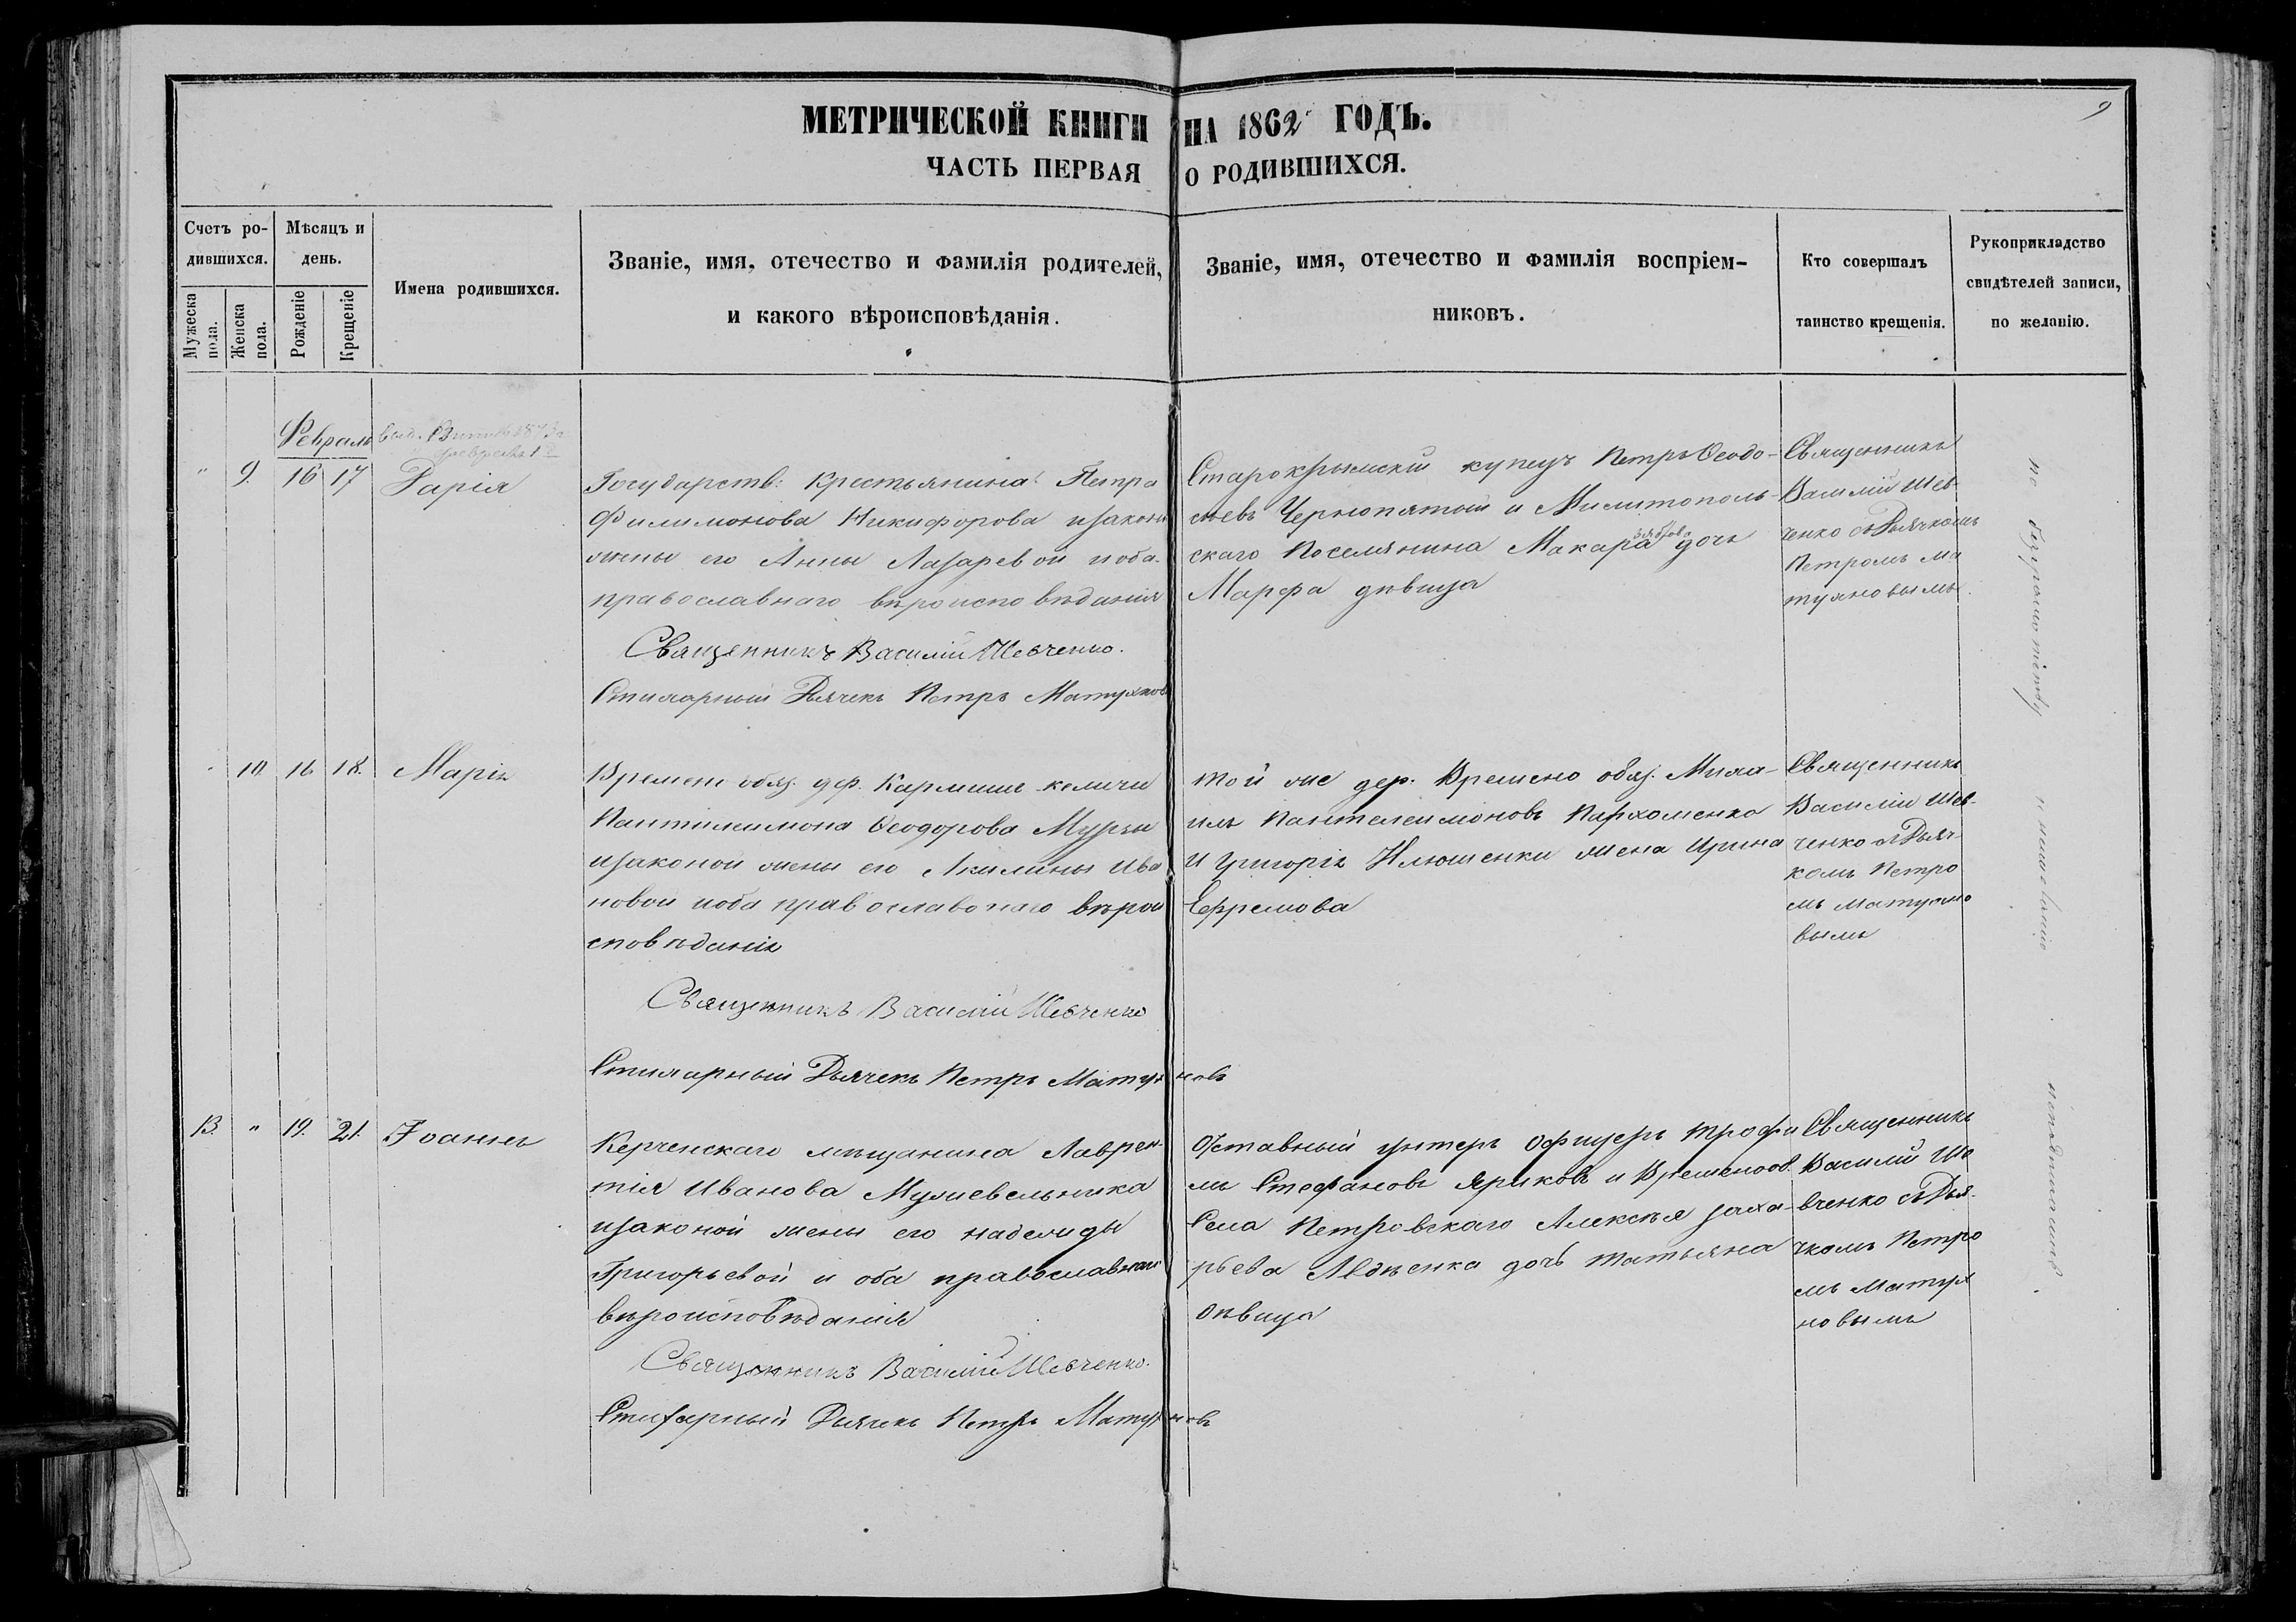 9
МЕТРИЧЕСКОЙ КНИГИ НА 1862 ГОДЪ.
ЧАСТЬ ПЕРВАЯ О РОДИВШИХСЯ.
Счетъ ро-
дившихся.
Мужеска пола.
Женска пола.
Мѣсяцъ и
день.
Рожденіе
Крещеніе
Имена родившихся.
Званіе, имя, отечество и фамилія родителей,
и какого вѣроисповѣданія.
Званіе, имя, отечество и фамилія воспріем-
никовъ.
Кто совершалъ
таинство крещенія.
Рукоприкладство
свидѣтелей записи,
по желанію.
Февраль
" 9. 16 17 Дарія
Государств: Крестьянина Петра
Филимонова Никифорова изаконн
жены его Анны Лазаревой иоба
православнаго вѣроисповѣданія
Священникъ Василій Шевченко.
Стихарный Дьячекъ Петръ Матухнов
Старокрымскій купецъ Петръ Ѳеодо-
сіевъ Чернопятый и Милитополь-
скаго Поселянина Макара дочь
Марфа дѣвица
Священникъ
Василій Шев-
ченко съ Дьячкомъ
Петромъ Ма
тухновымъ.
10. 16 18. Марія
Времено обяз. дер. Кармишъ-келичи
Пантилимона Ѳеодорова Мурзы
изаконой жены его Акилины Ива
новой иоба православнаго вѣрои
сповѣданія
Священникъ Василій Шевченко
Стихарный Дьячекъ Петръ Матухновъ
той же дер. Времено обяз. Миха-
илъ Пантелеимоновъ Пархоменко
и Григорія Илюшенки жена Ирина
Ефремова
Священникъ
Василій Шев-
ченко съ Дьяч
комъ Петро
мъ Матухно
вымъ
13. " 19. 21. Іоаннъ
Керченскаго мѣщанина Лаврен-
тія Иванова Мужевельника
изаконой жены его надежды
Григорьевой и оба православнаго
вѣроисповѣданія
Священникъ Василій Шевченко.
Стихарный Дьячекъ Петръ Матухновъ
Отставный унтеръ Офицеръ Трофи
мъ Стефановъ Яриковъ и Временооб.
Села Петровскаго Алексѣя Заха-
рьева Авдѣенка дочь Татьяна
дѣвица
Священникъ
Василій Ше
вченко съ Дья-
чкомъ Петро
мъ Матух
новымъ
по безграмотству